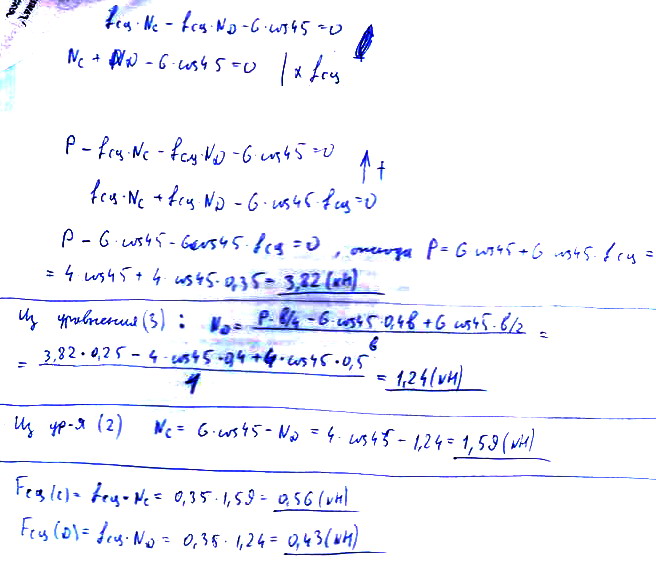 fсц·Nc - fсц·N_D - G·cos45=0
Nc + N_D - G·cos45=0 | × fсц
P - fсц·Nc - fсц·N_D - G·cos45=0
+
fсц·Nc + fсц·N_D - G·cos45·fсц=0
P - G·cos45 - G·cos45·fсц = 0, откуда P = G cos45 + G cos45·fсц =
= 4 cos45 + 4·cos45·0,35 = 3,82 (кН)
Из уравнения (3): N_D = (P·b/4 - G·cos45·0,4b + G cos45·b/2) / b =
= (3,82·0,25 - 4·cos45·0,4 + 4·cos45·0,5) / 1 = 1,24 (кН)
Из ур-я (2) Nc = G·cos45 - N_D = 4·cos45 - 1,24 = 1,59 (кН)
Fсц(c) = fсц·Nc = 0,35·1,59 = 0,56 (кН)
Fсц(D) = fсц·N_D = 0,35·1,24 = 0,43 (кН)